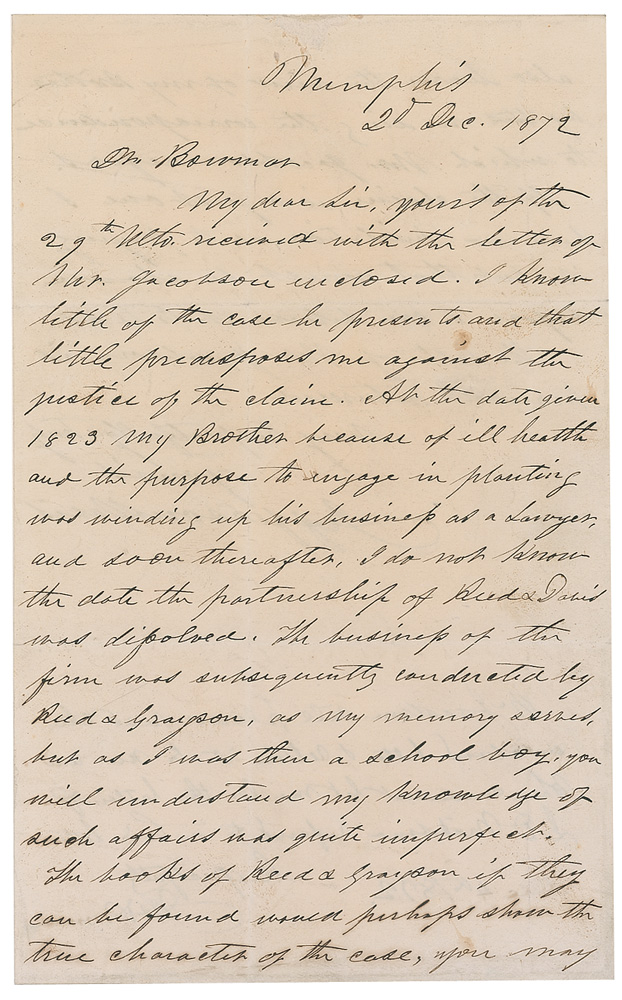 Memphis
2d Dec. 1872
Dr. Bowmar
My dear Sir, yours of the
29th Ulto. recieved with the letter of
Mr. Jacobson enclosed. I know
little of the case he presents and that
little predisposes me against the
justice of the claim. At the date given
1823 my Brother because of ill health
and the purpose to engage in planting
was winding up his business as a Lawyer,
and soon thereafter, I do not know
the date the partnership of Reed & Davis
was dissolved. The business of the
firm was subsequently conducted by
Reed & Grayson, as my memory serves,
but as I was then a school boy, you
will understand my knowledge of
such affairs was quite imperfect.
The books of Reed & Grayson if they
can be found would perhaps show the
true character of the case, you may